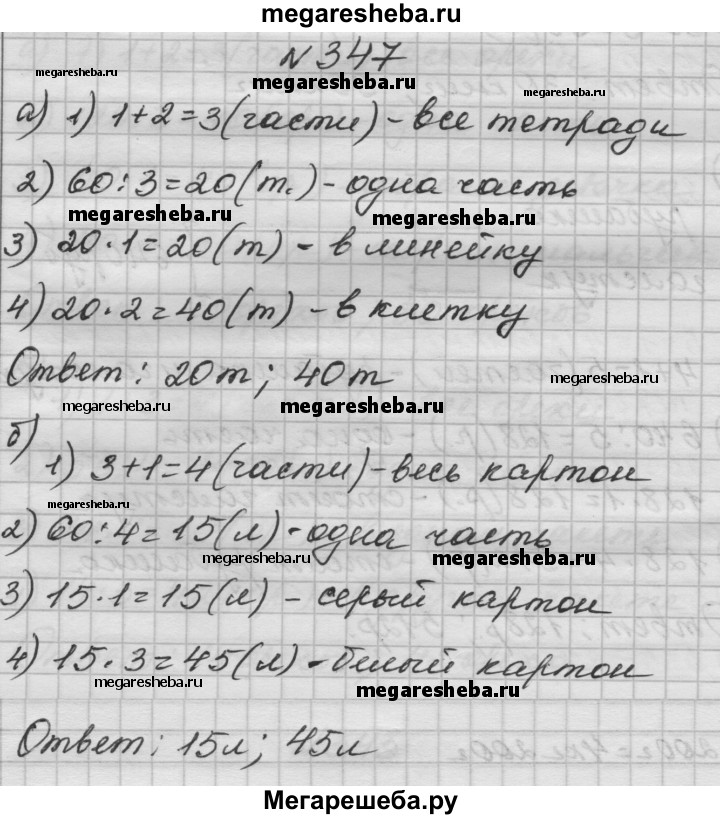 megaresheba.ru
№347
megaresheba.ru megaresheba.ru megaresheba.ru
а) 1) 1+2=3(части)-все тетради
megaresheba.ru
2) 60:3=20(т.)-одна часть
megaresheba.ru megaresheba.ru
3) 20·1=20(т) - в линейку
4) 20·2=40(т) - в клетку
Ответ: 20т; 40т
megaresheba.ru megaresheba.ru megaresheba.ru
б)
1) 3+1=4(части)-весь картон
megaresheba.ru
2) 60:4=15(л)-одна часть
megaresheba.ru megaresheba.ru
3) 15·1=15(л) - серый картон
4) 15·3=45(л)-белый картон
megaresheba.ru megaresheba.ru
Ответ: 15л; 45л
Мегарешеба.ру